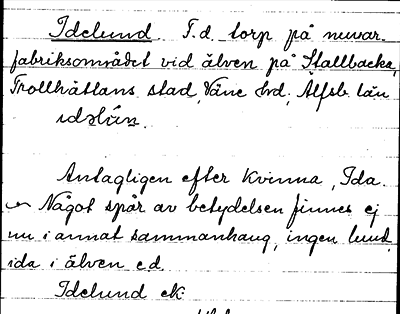 Idelund F.d. torp på nuvar.
fabriksområdet vid älven på Stallbacka,
Trollhättans stad, Väne hd, Älfsb. län
Antagligen efter kvinna, Ida.
Något spår av betydelsen finnes ej
nu i annat sammanhang, ingen lund,
ida i älven e.d.
Idelund ek.